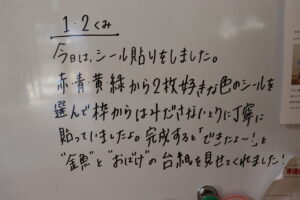 1・2くみ
今日は、シール貼りをしました。
赤・青・黄・緑から2枚好きな色のシールを
選んで枠からはみださないように丁寧に
貼っていましたよ。完成すると「できたよ〜!」と
"金魚"と"おばけ"の台紙を見せてくれました!